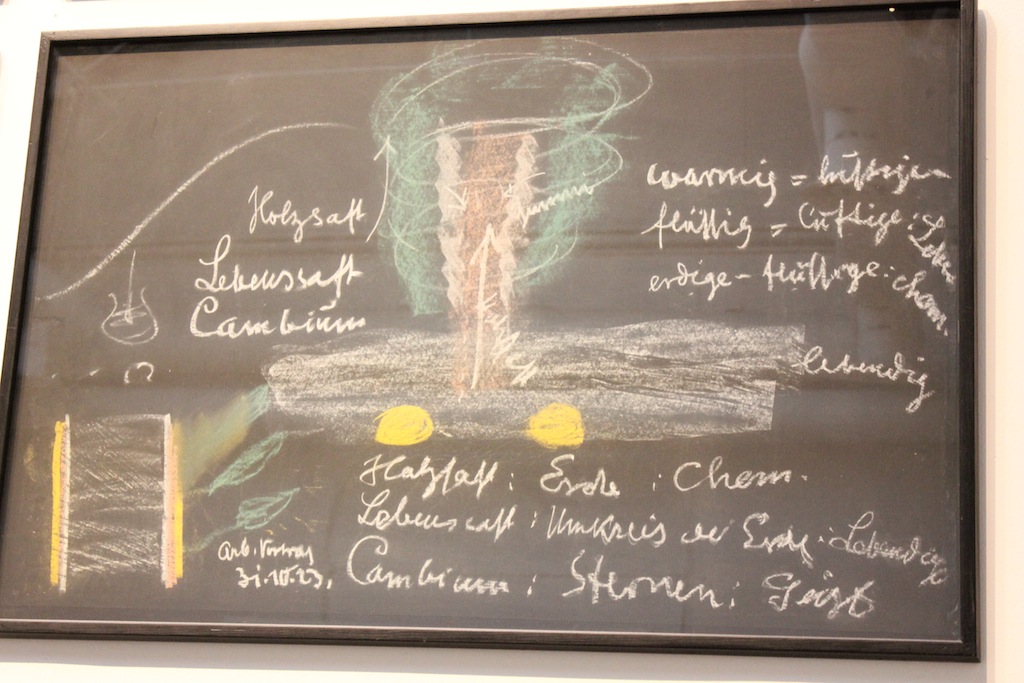 Holzsaft
Lebenssaft
Cambium
Gummi
warmig = luftigen
flüssig = luftige: Leben
erdige - flüssige: chem.
lebendig
Holzsaft: Erde: Chem.
Lebenssaft: Umkreis der Erde: Lebendige
Cambium: Sternen: Geist
Arb. Vortrag
31.10.23.